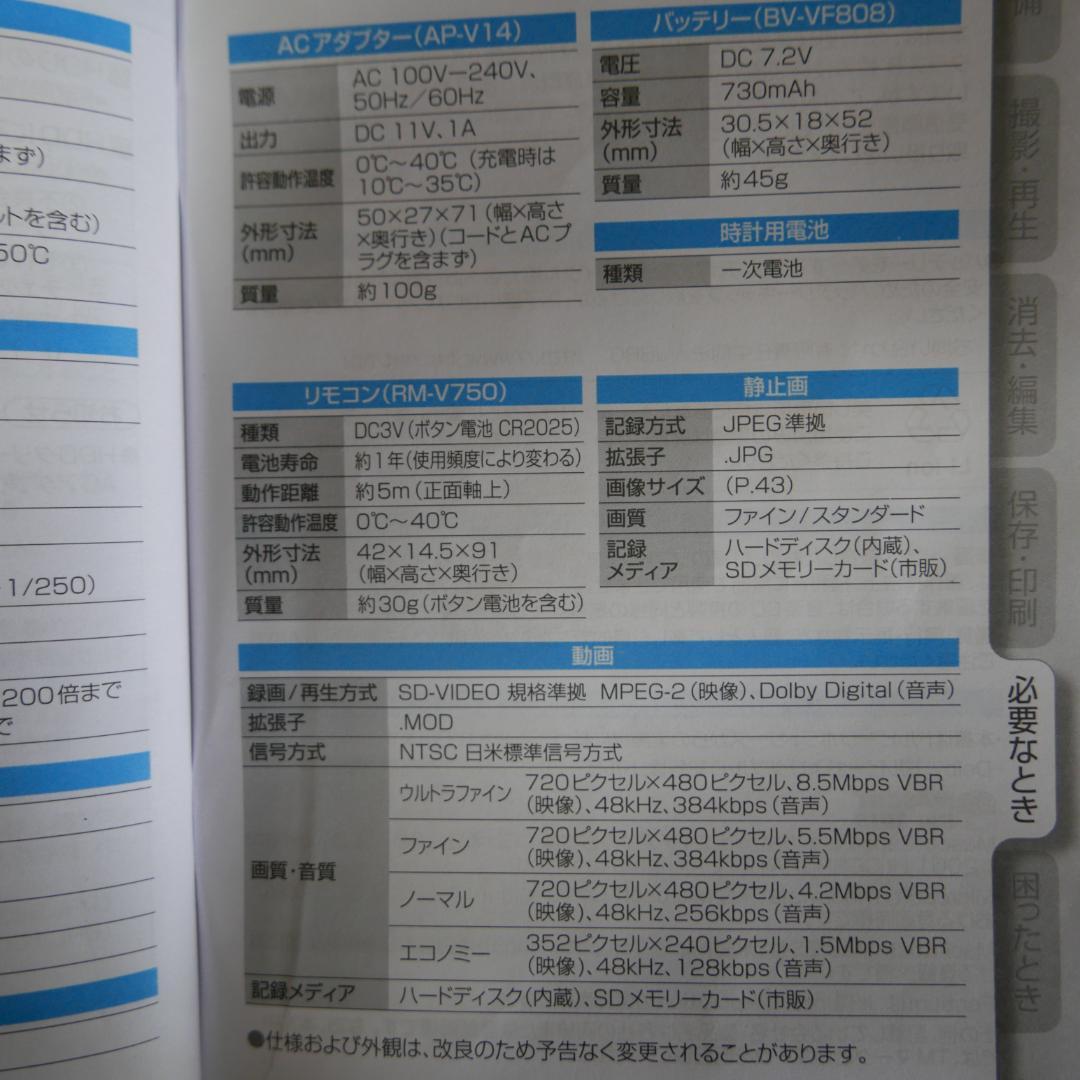 まず)
ルトを含む)
50℃
1/250)
200倍まで
で
ACアダプター(AP-V14)
電源
AC 100V－240V、
50Hz／60Hz
出力
DC 11V、1A
許容動作温度
0℃～40℃（充電時は
10℃～35℃）
外形寸法
(mm)
50×27×71（幅×高さ
×奥行き）（コードとACプ
ラグを含まず）
質量
約100g
バッテリー(BV-VF808)
電圧
DC 7.2V
容量
730mAh
外形寸法
(mm)
30.5×18×52
（幅×高さ×奥行き）
質量
約45g
時計用電池
種類
一次電池
リモコン(RM-V750)
種類
DC3V（ボタン電池 CR2025）
電池寿命
約1年（使用頻度により変わる）
動作距離
約5m（正面軸上）
許容動作温度
0℃～40℃
外形寸法
(mm)
42×14.5×91
（幅×高さ×奥行き）
質量
約30g（ボタン電池を含む）
静止画
記録方式
JPEG準拠
拡張子
.JPG
画像サイズ
(P.43)
画質
ファイン/スタンダード
記録
メディア
ハードディスク（内蔵）、
SDメモリーカード（市販）
動画
録画/再生方式
SD-VIDEO 規格準拠 MPEG-2（映像）、Dolby Digital（音声）
拡張子
.MOD
信号方式
NTSC 日米標準信号方式
画質・音質
ウルトラファイン
720ピクセル×480ピクセル、8.5Mbps VBR
（映像）、48kHz、384kbps（音声）
ファイン
720ピクセル×480ピクセル、5.5Mbps VBR
（映像）、48kHz、384kbps（音声）
ノーマル
720ピクセル×480ピクセル、4.2Mbps VBR
（映像）、48kHz、256kbps（音声）
エコノミー
352ピクセル×240ピクセル、1.5Mbps VBR
（映像）、48kHz、128kbps（音声）
記録メディア
ハードディスク（内蔵）、SDメモリーカード（市販）
●仕様および外観は、改良のため予告なく変更されることがあります。
備
撮影・再生
消去・編集
保存・印刷
必要なとき
困ったとき